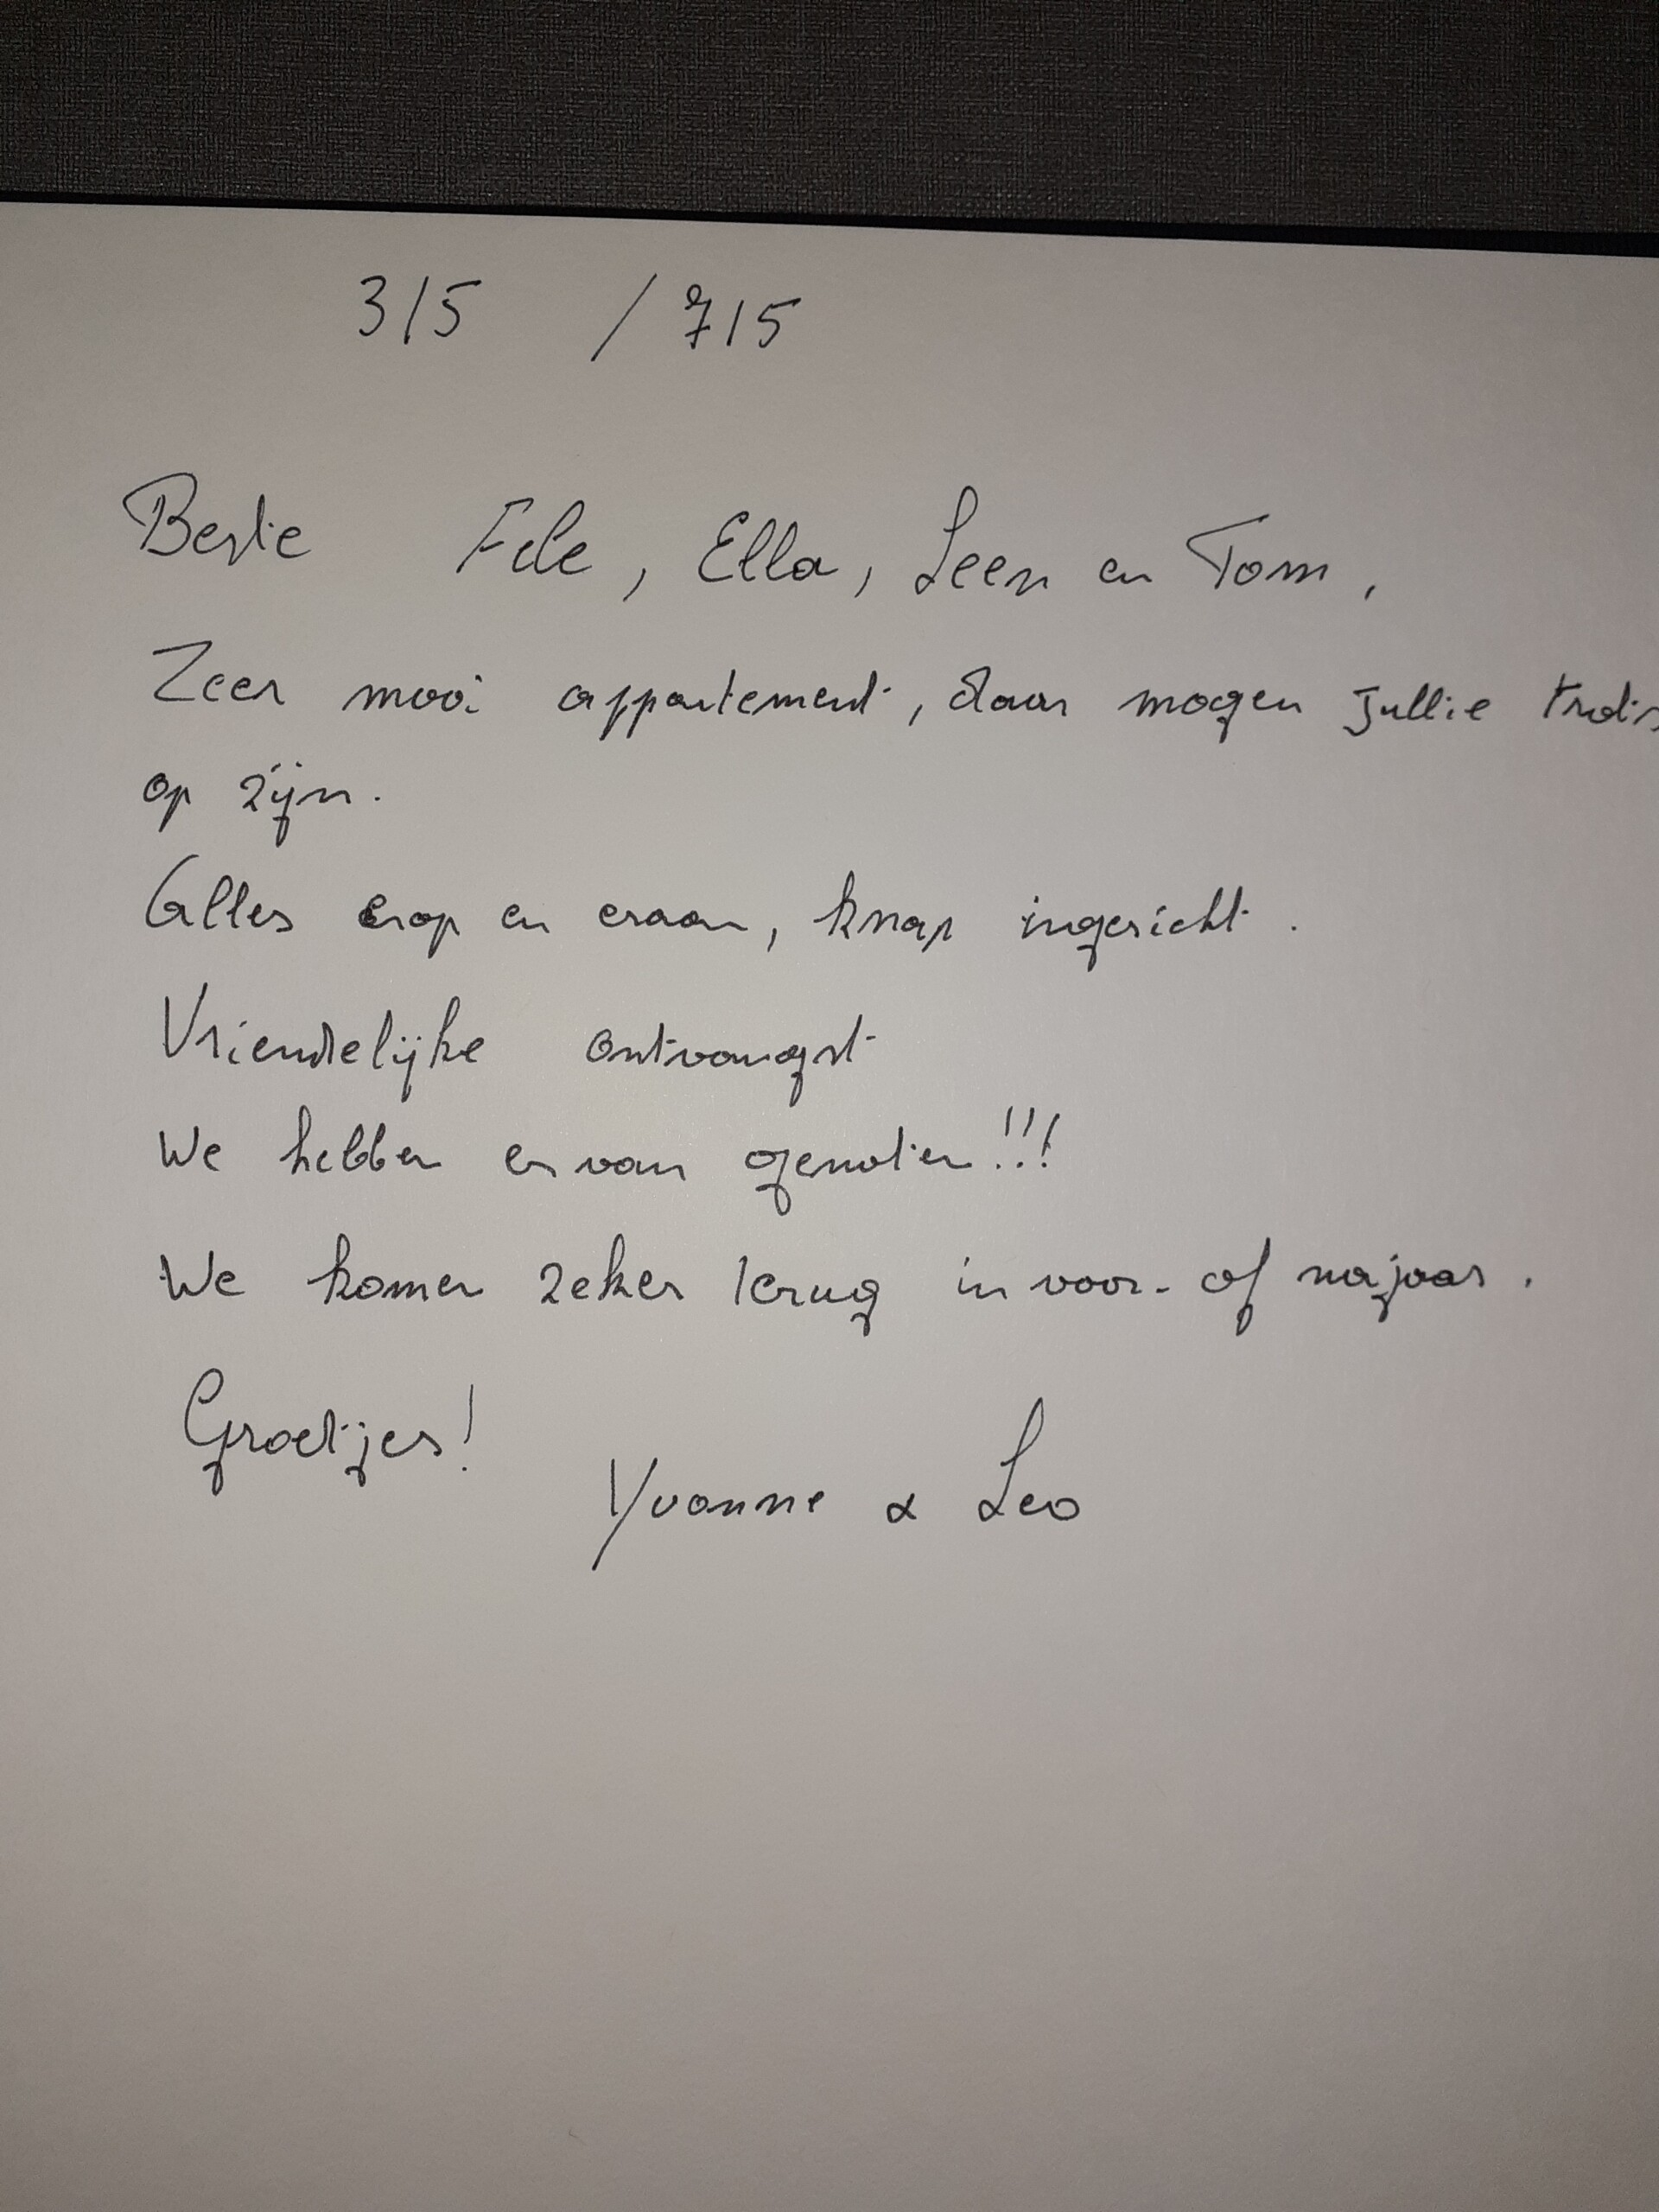 3/5 / 7/5
Beste Fele, Ella, Leen en Tom,
Zeer mooi appartement, daar mogen jullie trots
op zijn.
Alles erop en eraan, knap ingericht.
Vriendelijke ontvangst
We hebben ervan genoten!!!
We komen zeker terug in voor- of najaar.
Groetjes!
Yvonne & Leo